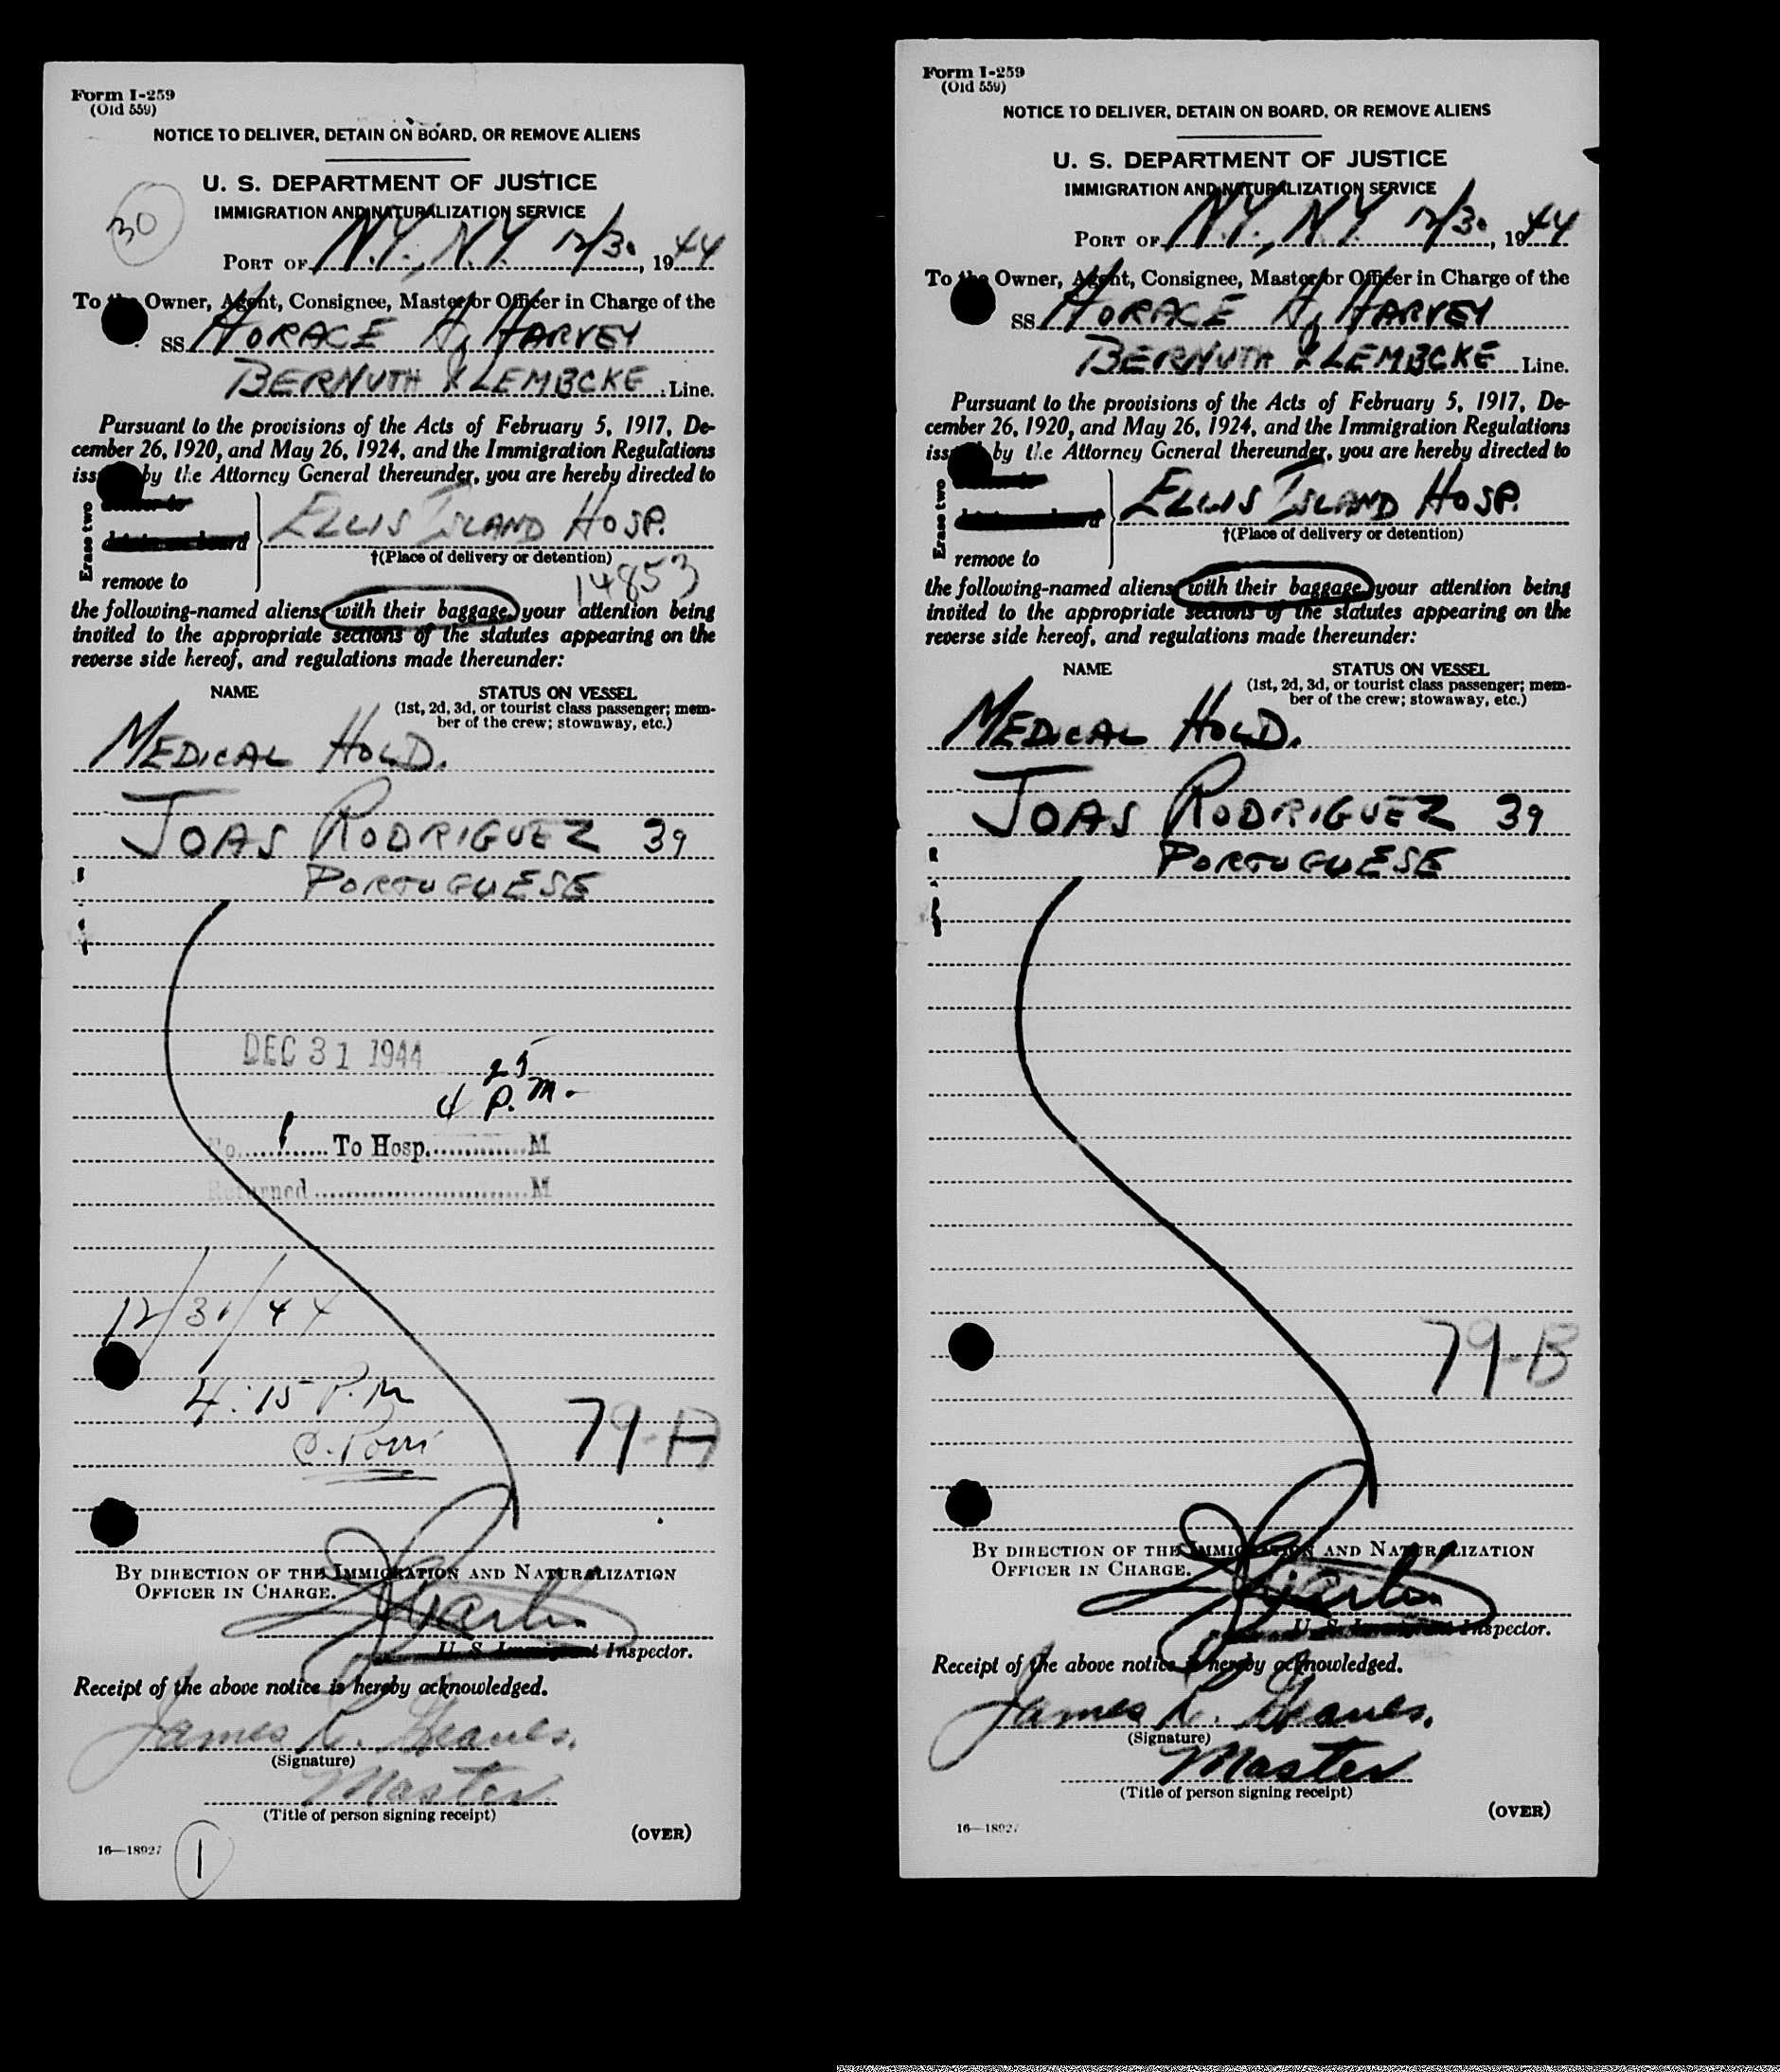 Form I-259
(Old 559)
NOTICE TO DELIVER, DETAIN ON BOARD, OR REMOVE ALIENS
U. S. DEPARTMENT OF JUSTICE
IMMIGRATION AND NATURALIZATION SERVICE
30
PORT OF N.Y., N.Y. 12/30, 1944
To the Owner, Agent, Consignee, Master or Officer in Charge of the
SS HORACE H. HARVEY
BERNUTH & LEMBCKE Line.
Pursuant to the provisions of the Acts of February 5, 1917, De-
cember 26, 1920, and May 26, 1924, and the Immigration Regulations
by the Attorney General thereunder, you are hereby directed to
Erase two
ELLIS ISLAND HOSP.
†(Place of delivery or detention)
remove to
14853
the following-named aliens with their baggage, your attention being
invited to the appropriate sections of the statutes appearing on the
reverse side hereof, and regulations made thereunder:
NAME STATUS ON VESSEL
(1st, 2d, 3d, or tourist class passenger; mem-
ber of the crew; stowaway, etc.)
MEDICAL HOLD.
JOAS RODRIGUEZ 39
PORTUGUESE
DEC 31 1944
4 25 P.M.
No. 1 To Hosp. M
Returned M
12/31/44
4:15 P.M
79-A
BY DIRECTION OF THE IMMIGRATION AND NATURALIZATION
OFFICER IN CHARGE.
Martin
U. S. Immigrant Inspector.
Receipt of the above notice is hereby acknowledged.
James R.
(Signature)
Master
(Title of person signing receipt)
(OVER)
16—18927
1
Form I-259
(Old 559)
NOTICE TO DELIVER, DETAIN ON BOARD, OR REMOVE ALIENS
U. S. DEPARTMENT OF JUSTICE
IMMIGRATION AND NATURALIZATION SERVICE
PORT OF N.Y., N.Y. 12/30, 1944
To the Owner, Agent, Consignee, Master or Officer in Charge of the
SS HORACE H. HARVEY
BERNUTH & LEMBCKE Line.
Pursuant to the provisions of the Acts of February 5, 1917, De-
cember 26, 1920, and May 26, 1924, and the Immigration Regulations
by the Attorney General thereunder, you are hereby directed to
Erase two
ELLIS ISLAND HOSP.
†(Place of delivery or detention)
remove to
the following-named aliens with their baggage, your attention being
invited to the appropriate sections of the statutes appearing on the
reverse side hereof, and regulations made thereunder:
NAME STATUS ON VESSEL
(1st, 2d, 3d, or tourist class passenger; mem-
ber of the crew; stowaway, etc.)
MEDICAL HOLD.
JOAS RODRIGUEZ 39
PORTUGUESE
79-B
BY DIRECTION OF THE IMMIGRATION AND NATURALIZATION
OFFICER IN CHARGE.
Martin
U. S. Immigrant Inspector.
Receipt of the above notice is hereby acknowledged.
James R.
(Signature)
Master
(Title of person signing receipt)
(OVER)
16—18927